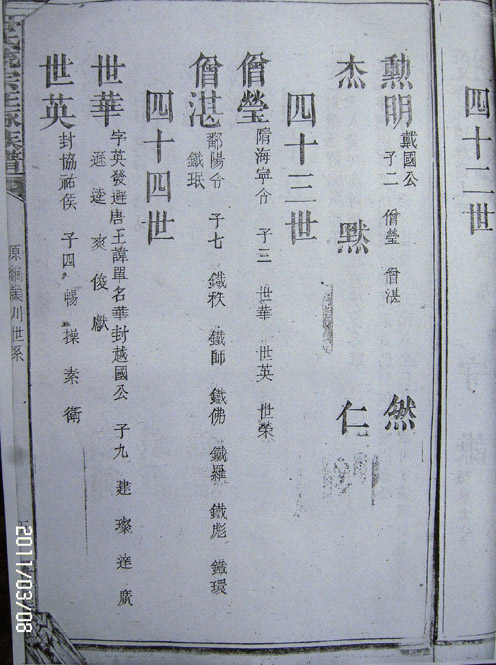 四十二世
勲明 戴國公 子二 僧瑩 僧湛
然
杰 默 仁
四十三世
僧瑩 隋海寧令 子三 世華 世英 世榮
僧湛 鄱陽令 子七 鐵秩 鐵師 鐵佛 鐵羅 鐵彪 鐵環
鐵珉
四十四世
世華 字英發避唐王諱單名華封越國公 子九 建 璨 達 廣
遜 逵 爽 俊 獻
世英 封協祐侯 子四 暢 操 素 衛
族譜
原編 川世系
2011/03/08